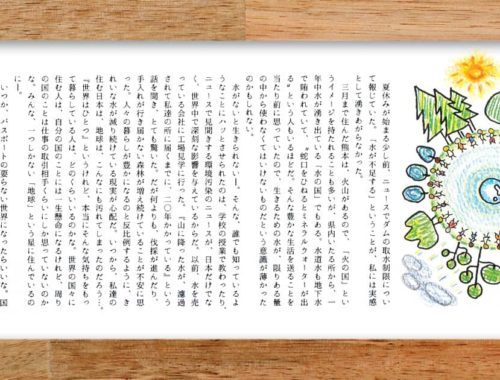 夏休みが始まる少し前、ニュースでダムの取水制限につい
て報じていた。「水が不足する」ということが、私には実感
として湧きあがらなかった。
三月まで住んだ熊本は、火山があるので、「火の国」とい
うイメージを持たれることも多いが、県内いたる所から、一
年中水が湧き出ている「水の国」でもある。水道水も地下水
で賄われていて、〝蛇口をひねるとミネラルウォーターが出
る〟という人もいるほどだ。そんな豊かな生活を送ることを
当たり前に思っていたので、生きるための水が、限りある量
の中から使わなくてはいけないものだという意識が薄かった
のかもしれない。
水がないと生きられない―。そんな、誰でも知っているよ
うなことにハッとさせられたのは、学校の授業で教わったり、
ニュースで見聞きする環境汚染のニュースが、日本だけでな
く、世界中で深刻な影響を与えているからだ。以前、水を売
っている会社に工場見学に行った。「山に降った水が、濾過
されて私達の所に届くまで、二〇年かかるんです。」という
話を聞き、とても驚いた。だが何よりも、伐採が進んだり、
手入れが行き届かない森林が増え続けていることが不安に思
った。人々の暮らしが豊かになるのと反比例するように、き
れいな水が減り続けている現実が心配だ。いつから、私達の
住む日本は、地球は、こんなにも汚れてしまったのだろう…。
『世界はひとつ』というけれど、本当にそんな気持ちをもっ
て暮らしている人は、どのくらいいるのかな。世界の国々に
住む人は、自分の国のことには一生懸命になるけれど、周り
の国のことは仕事の取引相手くらいにしか思っていないのか
な。みんな、一つしかない「地球」という星に住んでいるの
いつか、パスポートの要らない世界になったらいいな。国